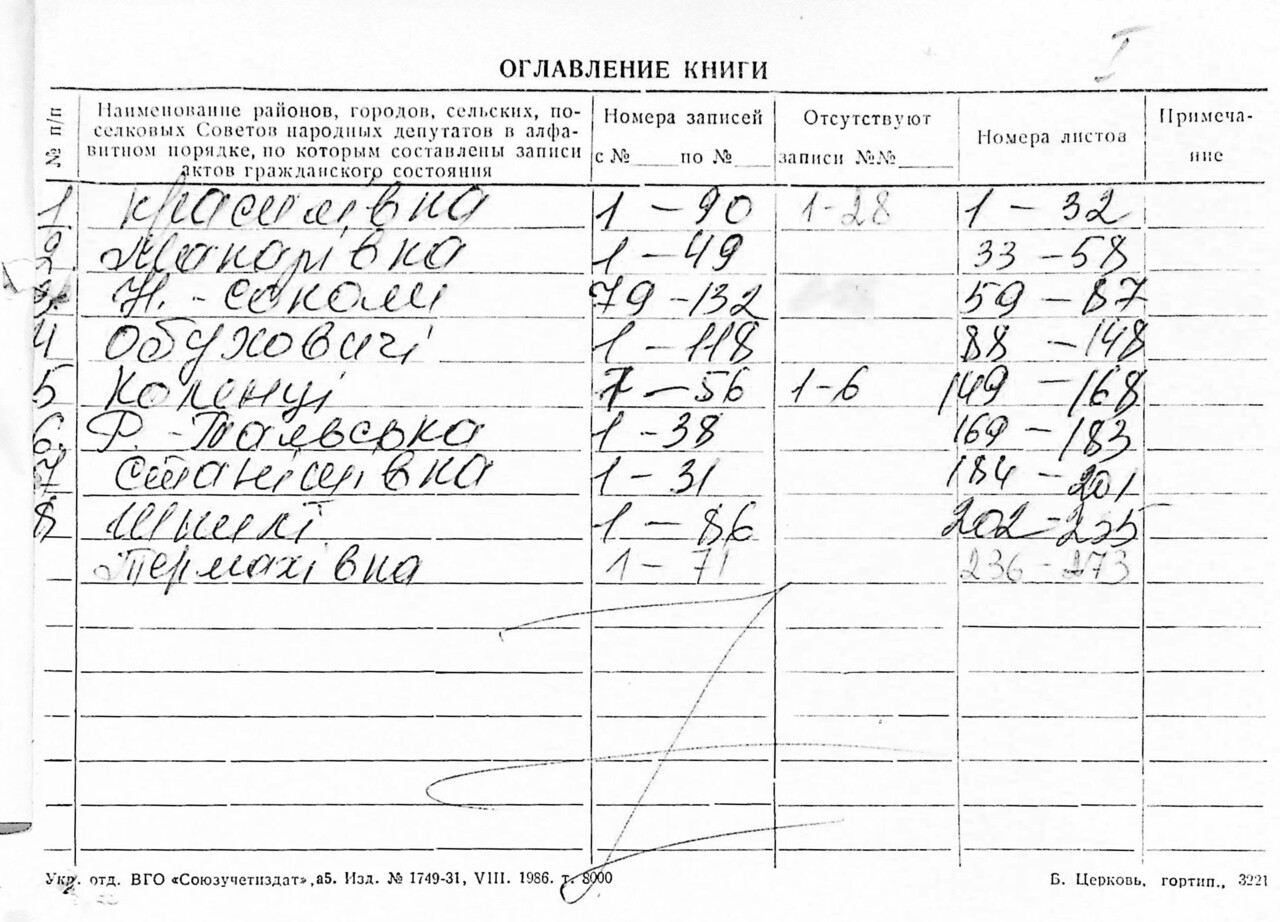 I
ОГЛАВЛЕНИЕ КНИГИ
№ п/п
Наименование районов, городов, сельских, по-
селковых Советов народных депутатов в алфа-
витном порядке, по которым составлены записи
актов гражданского состояния
Номера записей
с № по №
Отсутствуют
записи №№
Номера листов
Примеча-
ние
1 Красилівка 1 – 90 1-28 1 – 32
2 Макарівка 1 – 49 33 – 58
3. Н. - Соколи 79 – 132 59 – 87
4 Обуховичі 1 – 118 88 – 148
5 Коленці 7 – 56 1-6 149 – 168
6. Р. - Тальська 1 - 38 169 – 183
7 Станішівка 1 – 31 184 – 201
8 Шпилі 1 – 86 202 - 235
Термахівка 1 – 71 236 - 273
Укр. отд. ВГО «Союзучетиздат», а5. Изд. № 1749-31, VIII. 1986. т. 8000
Б. Церковь, гортип., 3221